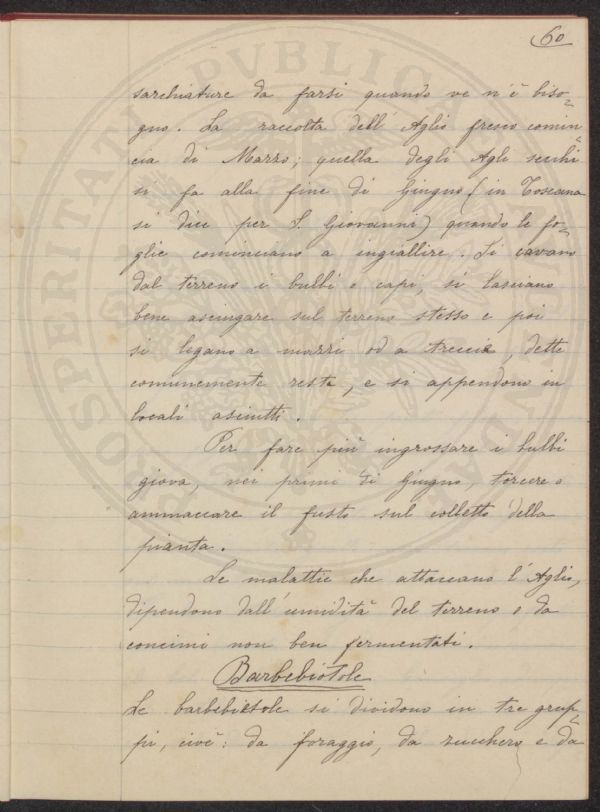 60
sarchiature da farsi quando ve n'è biso-
gno. La raccolta dell'Aglio fresco comin-
cia di Marzo; quella degli Agli secchi
si fa alla fine di Giugno (in Toscana
si dice per S. Giovanni) quando le fo-
glie cominciano a ingiallire. Si cavano
dal terreno i bulbi o capi, si lasciano
bene asciugare sul terreno stesso e poi
si legano a mazzi od a treccie, dette
comunemente resta, e si appendono in
locali asciutti.
Per fare più ingrossare i bulbi
giova, nei primi di Giugno, torcere o
ammaccare il fusto sul colletto della
pianta.
Le malattie che attaccano l'Aglio,
dipendono dall'umidità del terreno o da
concimi non ben fermentati.
Barbebietole
Le barbebietole si dividono in tre grup-
pi, cioè: da foraggio, da zucchero e da
PROSPERITATI PUBLICAE AUGENDAE